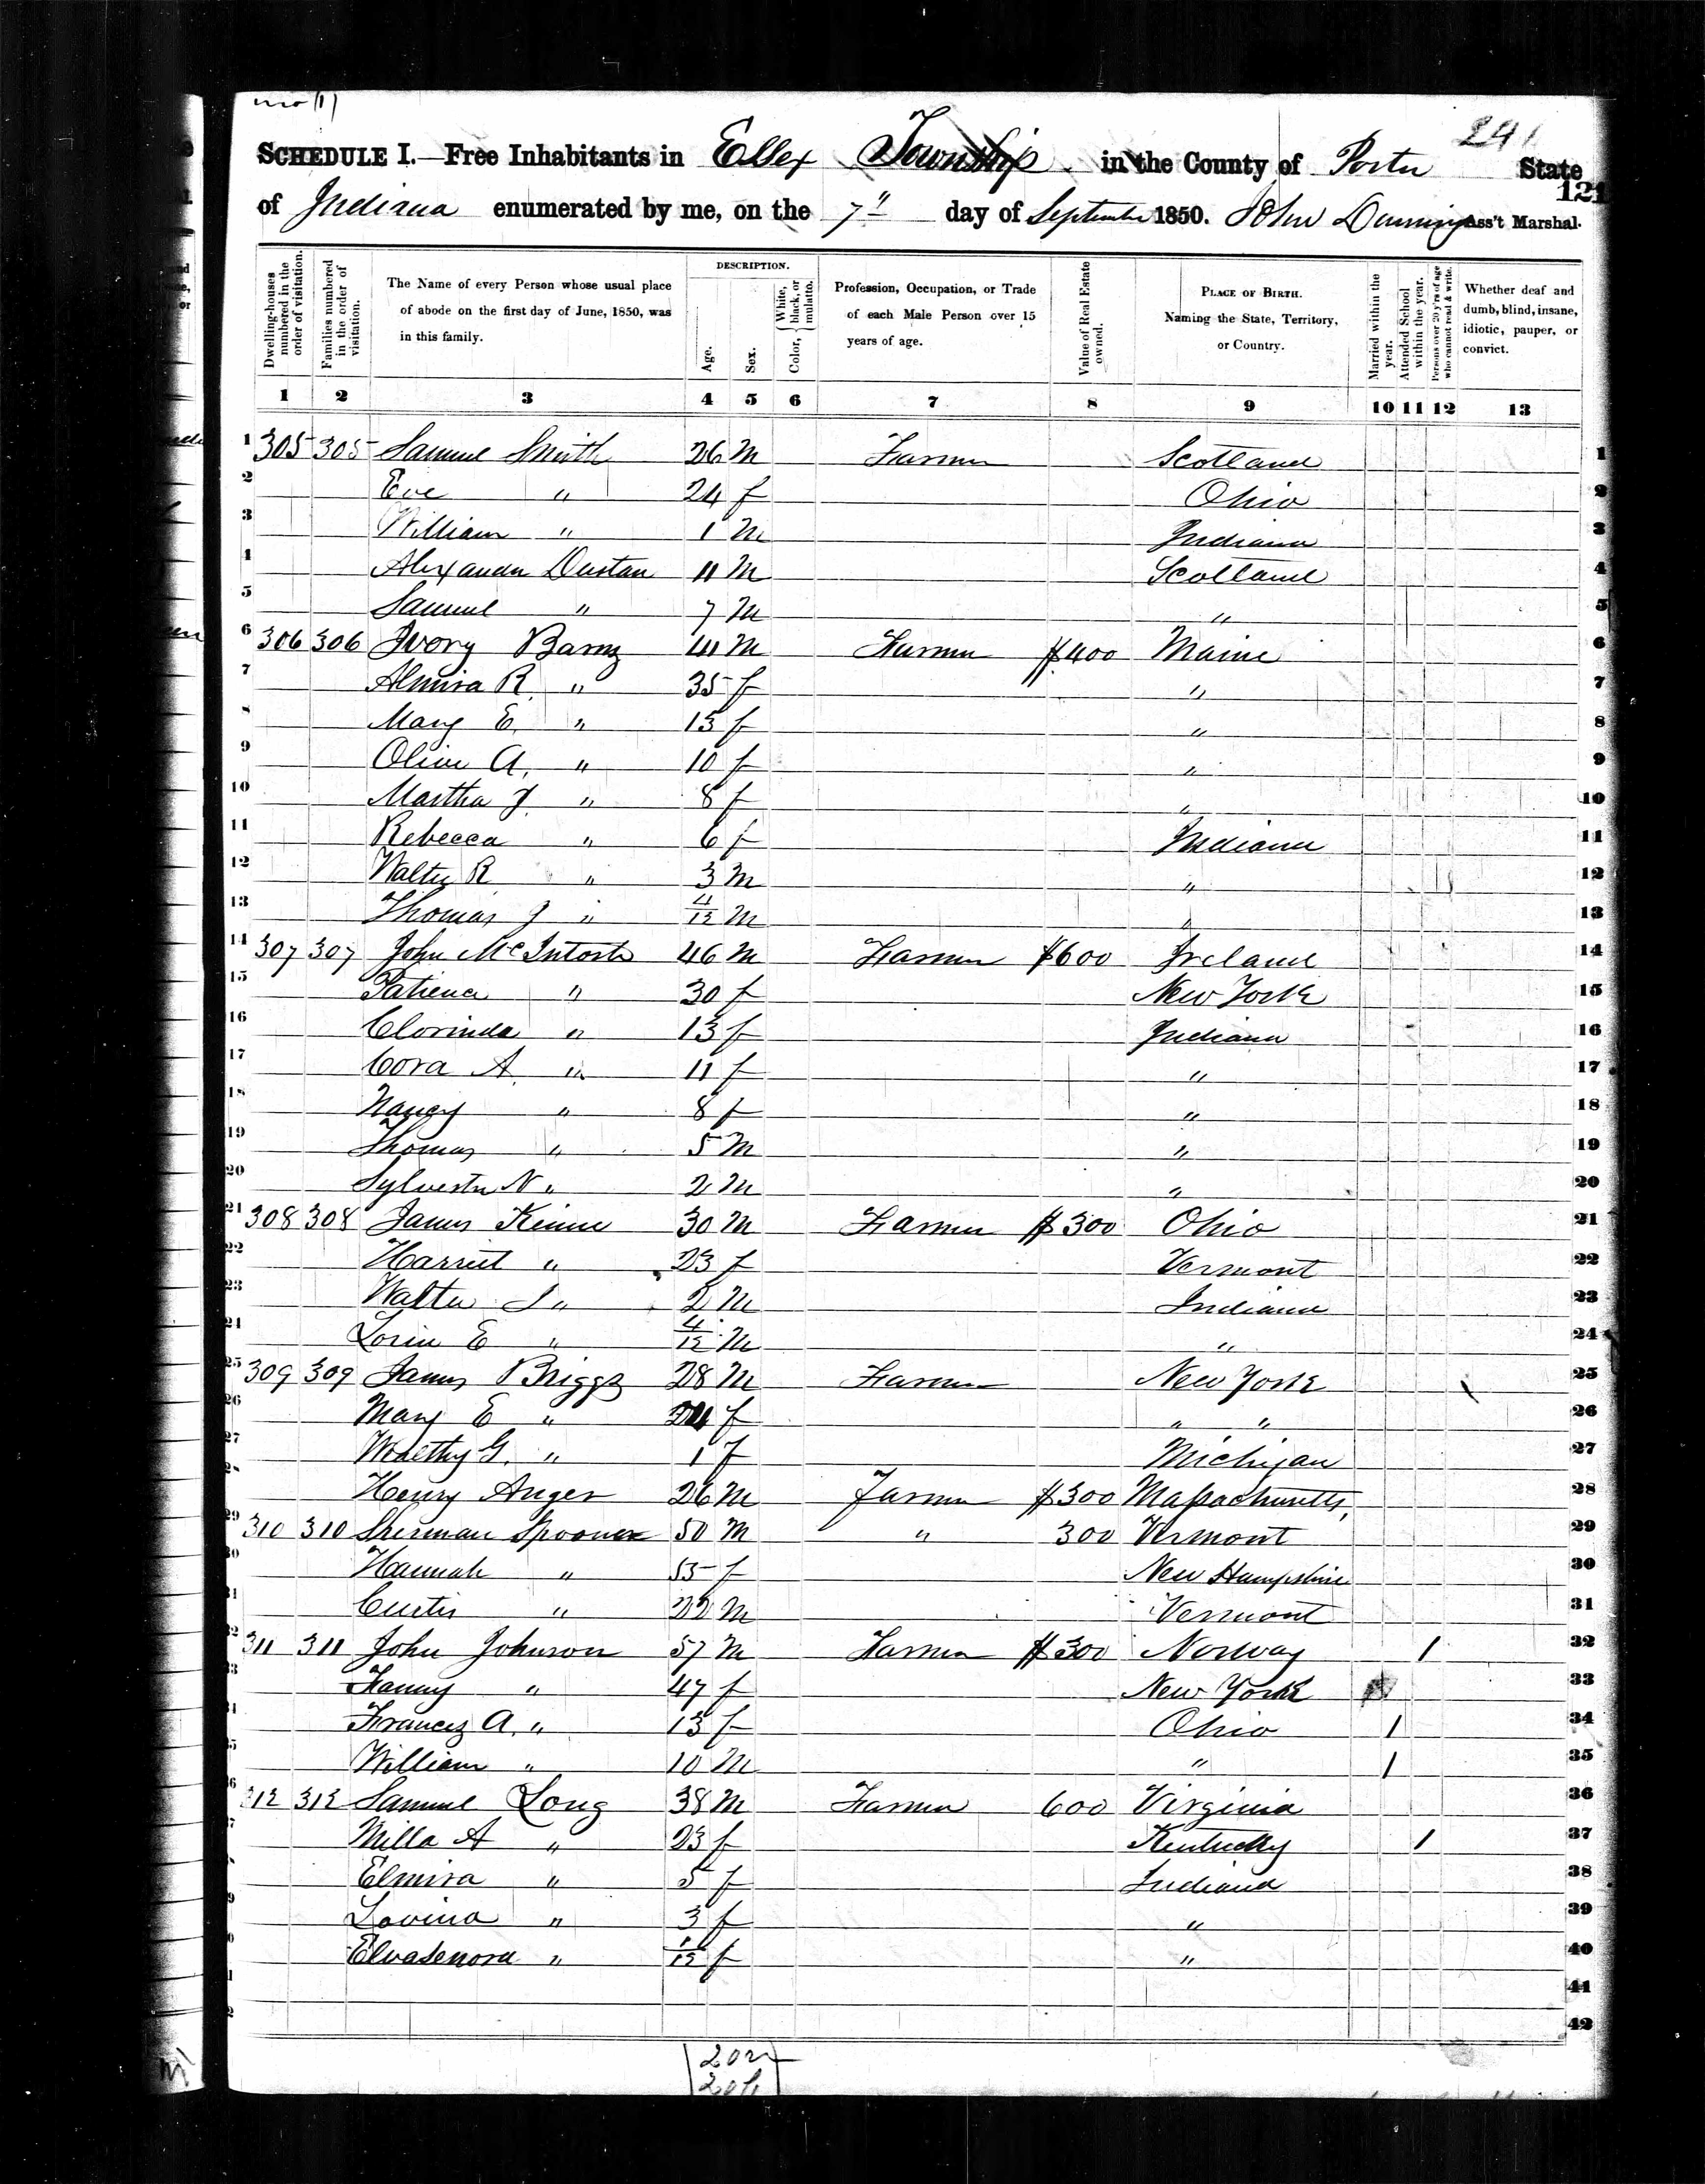 241
SCHEDULE I.—Free Inhabitants in Essex Township in the County of Porter State
121
of Indiana enumerated by me, on the 7" day of September 1850. John Ass't Marshal.
Dwelling-houses numbered in the order of visitation.
Families numbered in the order of visitation.
The Name of every Person whose usual place of abode on the first day of June, 1850, was in this family.
DESCRIPTION.
Age.
Sex.
Color, { White, black, or mulatto.
Profession, Occupation, or Trade of each Male Person over 15 years of age.
Value of Real Estate owned.
PLACE OF BIRTH. Naming the State, Territory, or Country.
Married within the year.
Attended School within the year.
Persons over 20 y'rs of age who cannot read & write.
Whether deaf and dumb, blind, insane, idiotic, pauper, or convict.
1 2 3 4 5 6 7 8 9 10 11 12 13
1 305 305 Samuel Smith 26 M Farmer Scotland 1
2 Eve " 24 f Ohio 2
3 William " 1 M Indiana 3
4 Alexander Dustan 11 M Scotland 4
5 Samuel " 7 M " 5
6 306 306 Ivory Barnz 41 M Farmer $400 Maine 6
7 Almira R. " 35 f " 7
8 Mary E. " 13 f " 8
9 Olive A. " 10 f " 9
10 Martha J. " 8 f " 10
11 Rebecca " 6 f Indiana 11
12 Walter R " 3 M " 12
13 Thomas J " 4/12 M " 13
14 307 307 John McIntosh 46 M Farmer $600 Ireland 14
15 Patience " 30 f New York 15
16 Clorinda " 13 f Indiana 16
17 Cora A. " 11 f " 17
18 Nancy " 8 f " 18
19 Thomas " 5 M " 19
20 Sylvester N " 2 M " 20
21 308 308 James Kinne 30 M Farmer $300 Ohio 21
22 Harriet " 23 f Vermont 22
23 Walter S " 2 M Indiana 23
24 Lorin E " 4/12 M " 24
25 309 309 James Briggs 28 M Farmer New York 25
26 Mary E " 24 f " " 26
27 Wealthy G. " 1 f Michigan 27
28 Henry Anger 26 M Farmer $300 Massachusetts, 28
29 310 310 Sherman Spooner 50 M " 300 Vermont 29
30 Hannah " 55 f New Hampshire 30
31 Curtis " 22 M Vermont 31
32 311 311 John Johnson 57 M Farmer $300 Norway 1 32
33 Fanny " 47 f New York 33
34 Francez A. " 13 f Ohio 1 34
35 William " 10 M " 1 35
36 312 312 Samuel Long 38 M Farmer 600 Virginia 36
37 Milla A " 23 f Kentucky 1 37
38 Elmira " 5 f Indiana 38
39 Lovina " 3 f " 39
40 Elvasenora " 1/12 f " 40
41
42